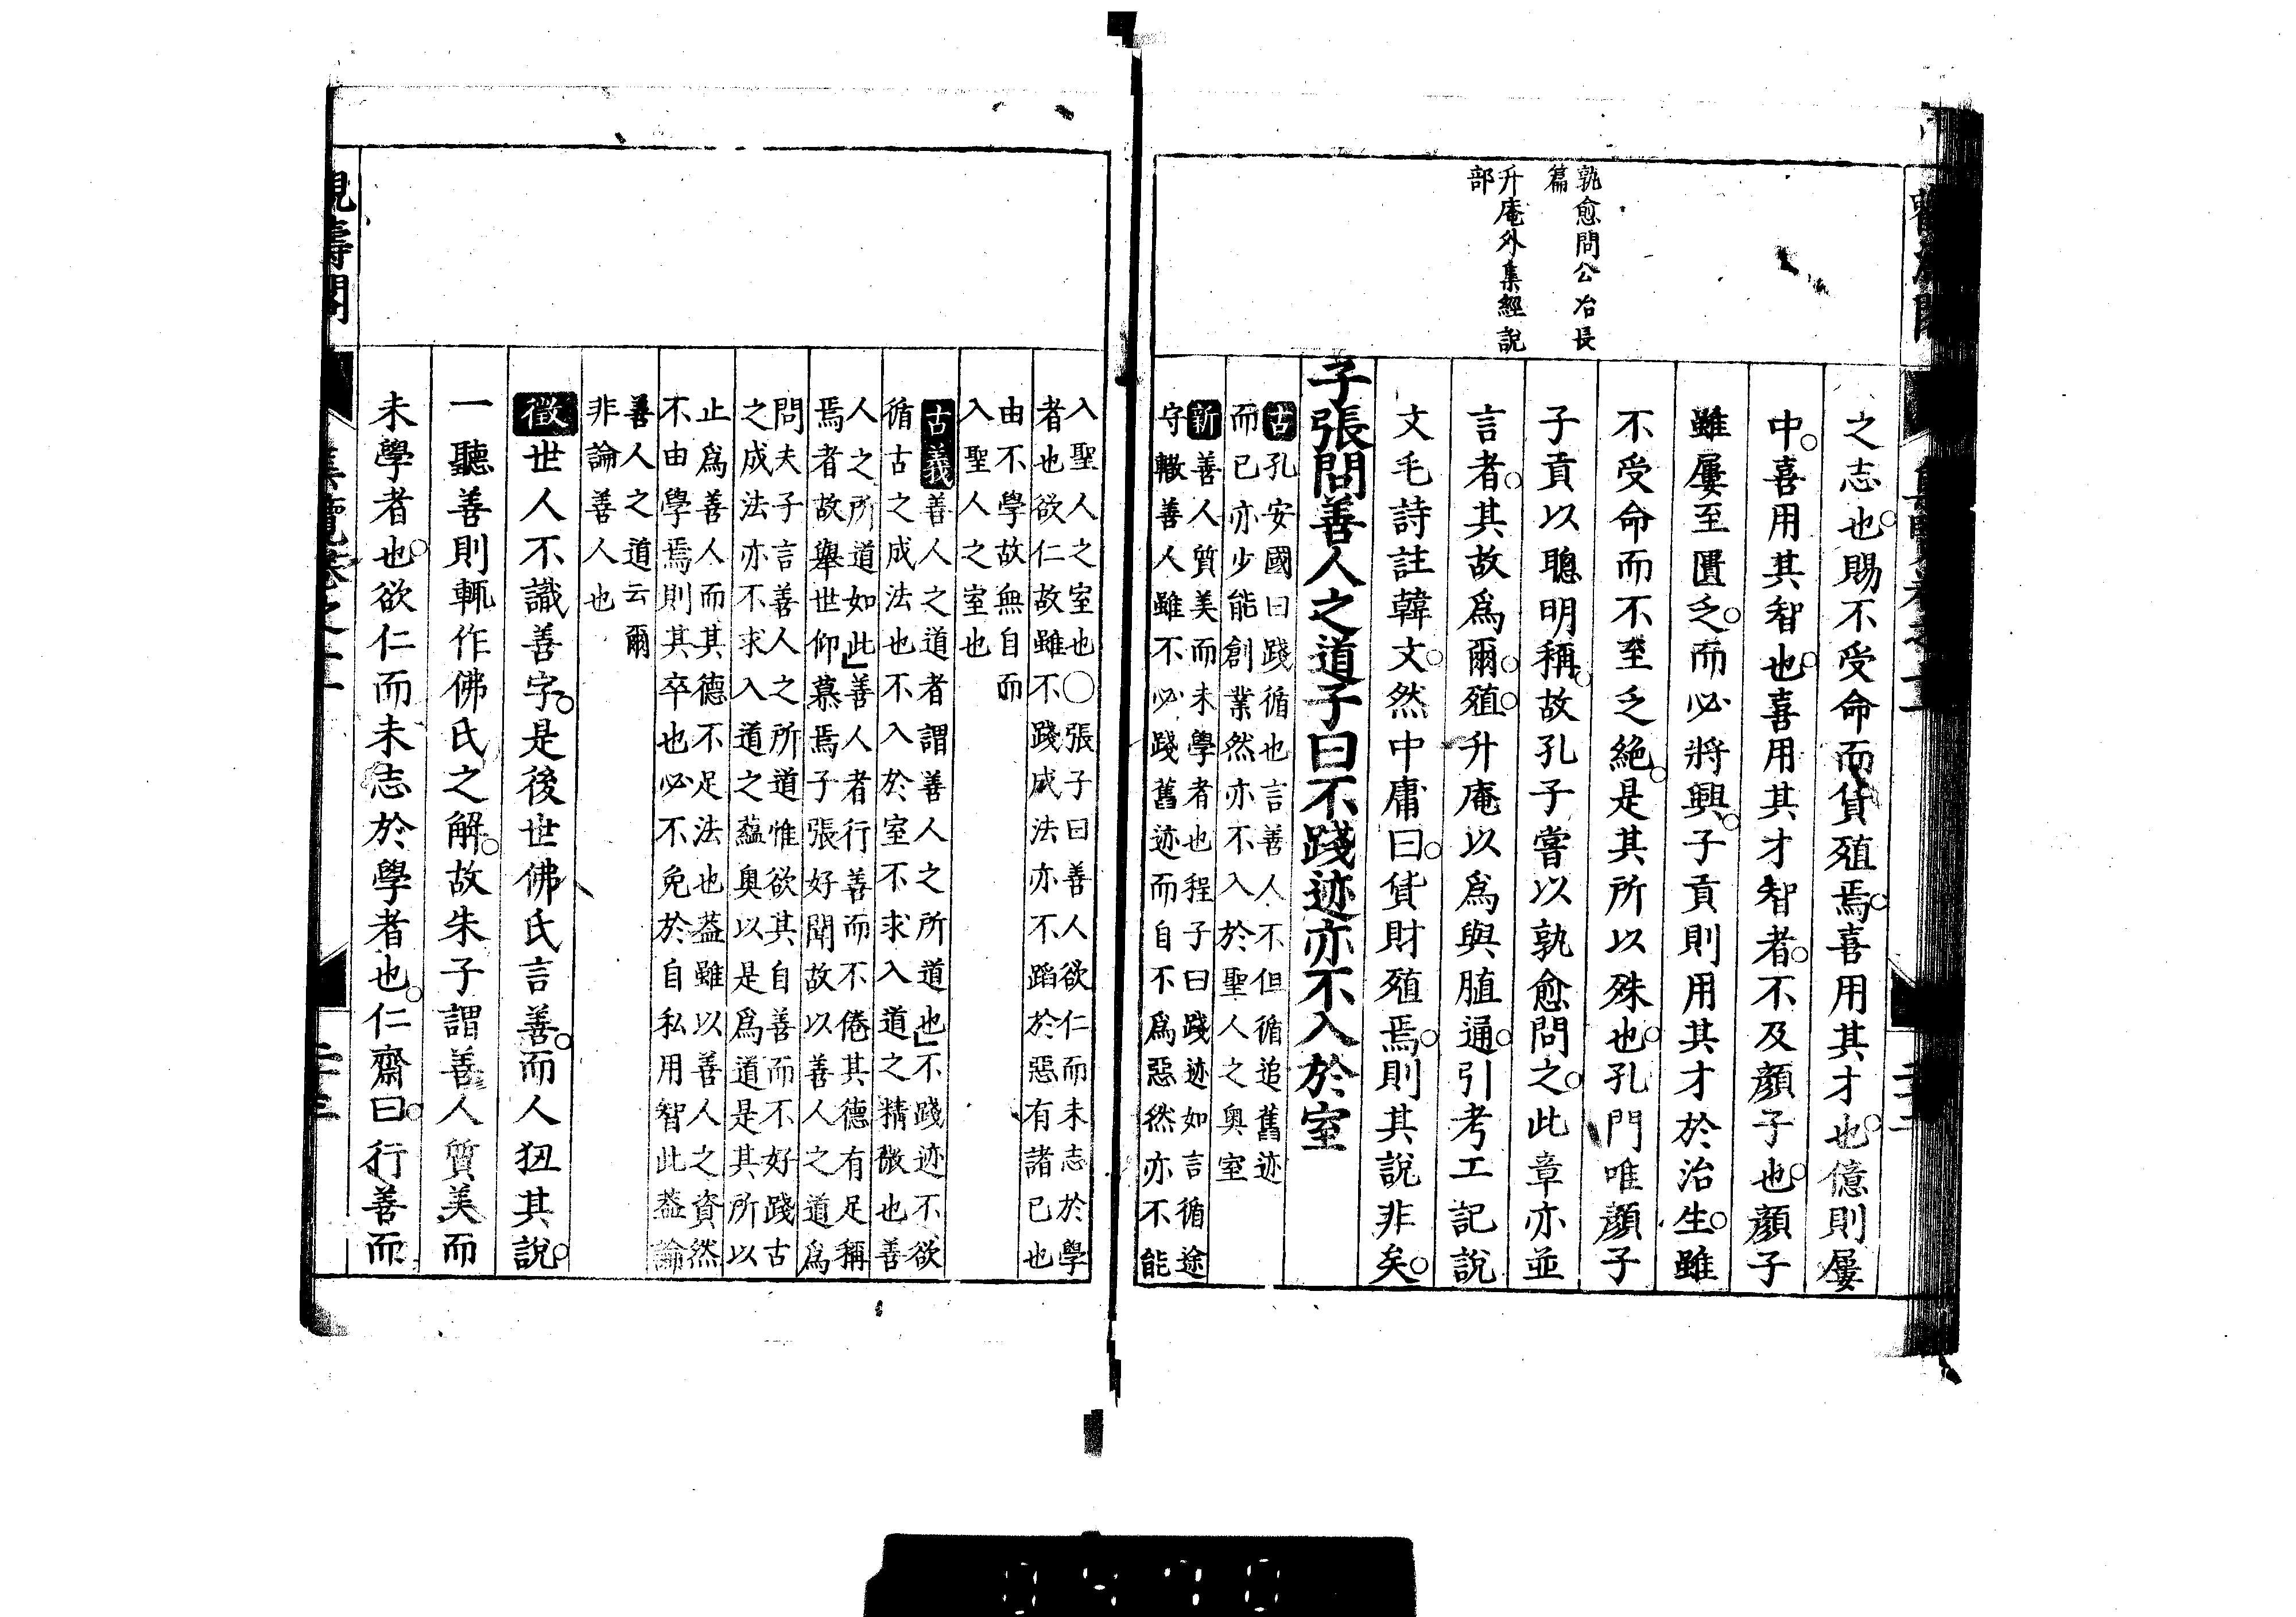 孰愈問公冶長
篇
升庵外集經說
部
之志也賜不受命而貨殖焉喜用其才也億則屢
中喜用其智也喜用其才智者不及顏子也顏子
雖屢至匱乏而必將興子貢則用其才於治生雖
不受命而不至乏絕是其所以殊也孔門唯顏子
子貢以聰明稱故孔子嘗以孰愈問之此章亦並
言者其故爲爾殖升庵以爲與脜通引考工記說
文毛詩註韓文然中庸曰貨財殖焉則其說非矣
子張問善人之道子曰不踐迹亦不入於室
古孔安國曰踐循也言善人不但循追舊迹
而已亦少能創業然亦不入於聖人之奧室
新善人質美而未學者也程子曰踐迹如言循途
守轍善人雖不必踐舊迹而自不爲惡然亦不能
入聖人之室也〇張子曰善人欲仁而未志於學
者也欲仁故雖不踐成法亦不蹈於惡有諸己也
由不學故無自而
入聖人之室也
古義善人之道者謂善人之所道也」不踐迹不欲
循古之成法也不入於室不求入道之精微也善
人之所道如此」善人者行善而不倦其德有足稱
焉者故舉世仰慕焉子張好聞故以善人之道爲
問夫子言善人之所道惟欲其自善而不好踐古
之成法亦不求入道之蘊奧以是爲道是其所以
止爲善人而其德不足法也蓋雖以善人之資然
不由學焉則其卒也必不免於自私用智此蓋論
善人之道云爾
非論善人也
徵世人不識善字是後世佛氏言善而人狃其說
一聽善則輒作佛氏之解故朱子謂善人質美而
未學者也欲仁而未志於學者也仁齋曰行善而